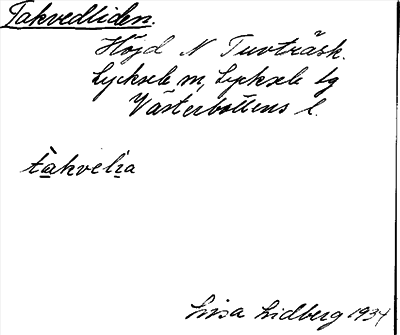 Takvedliden.
Höjd N Tuvträsk.
Lycksele m, Lycksele lg
Västerbottens l.
tàkvelìa
Lisa Lidberg 1934